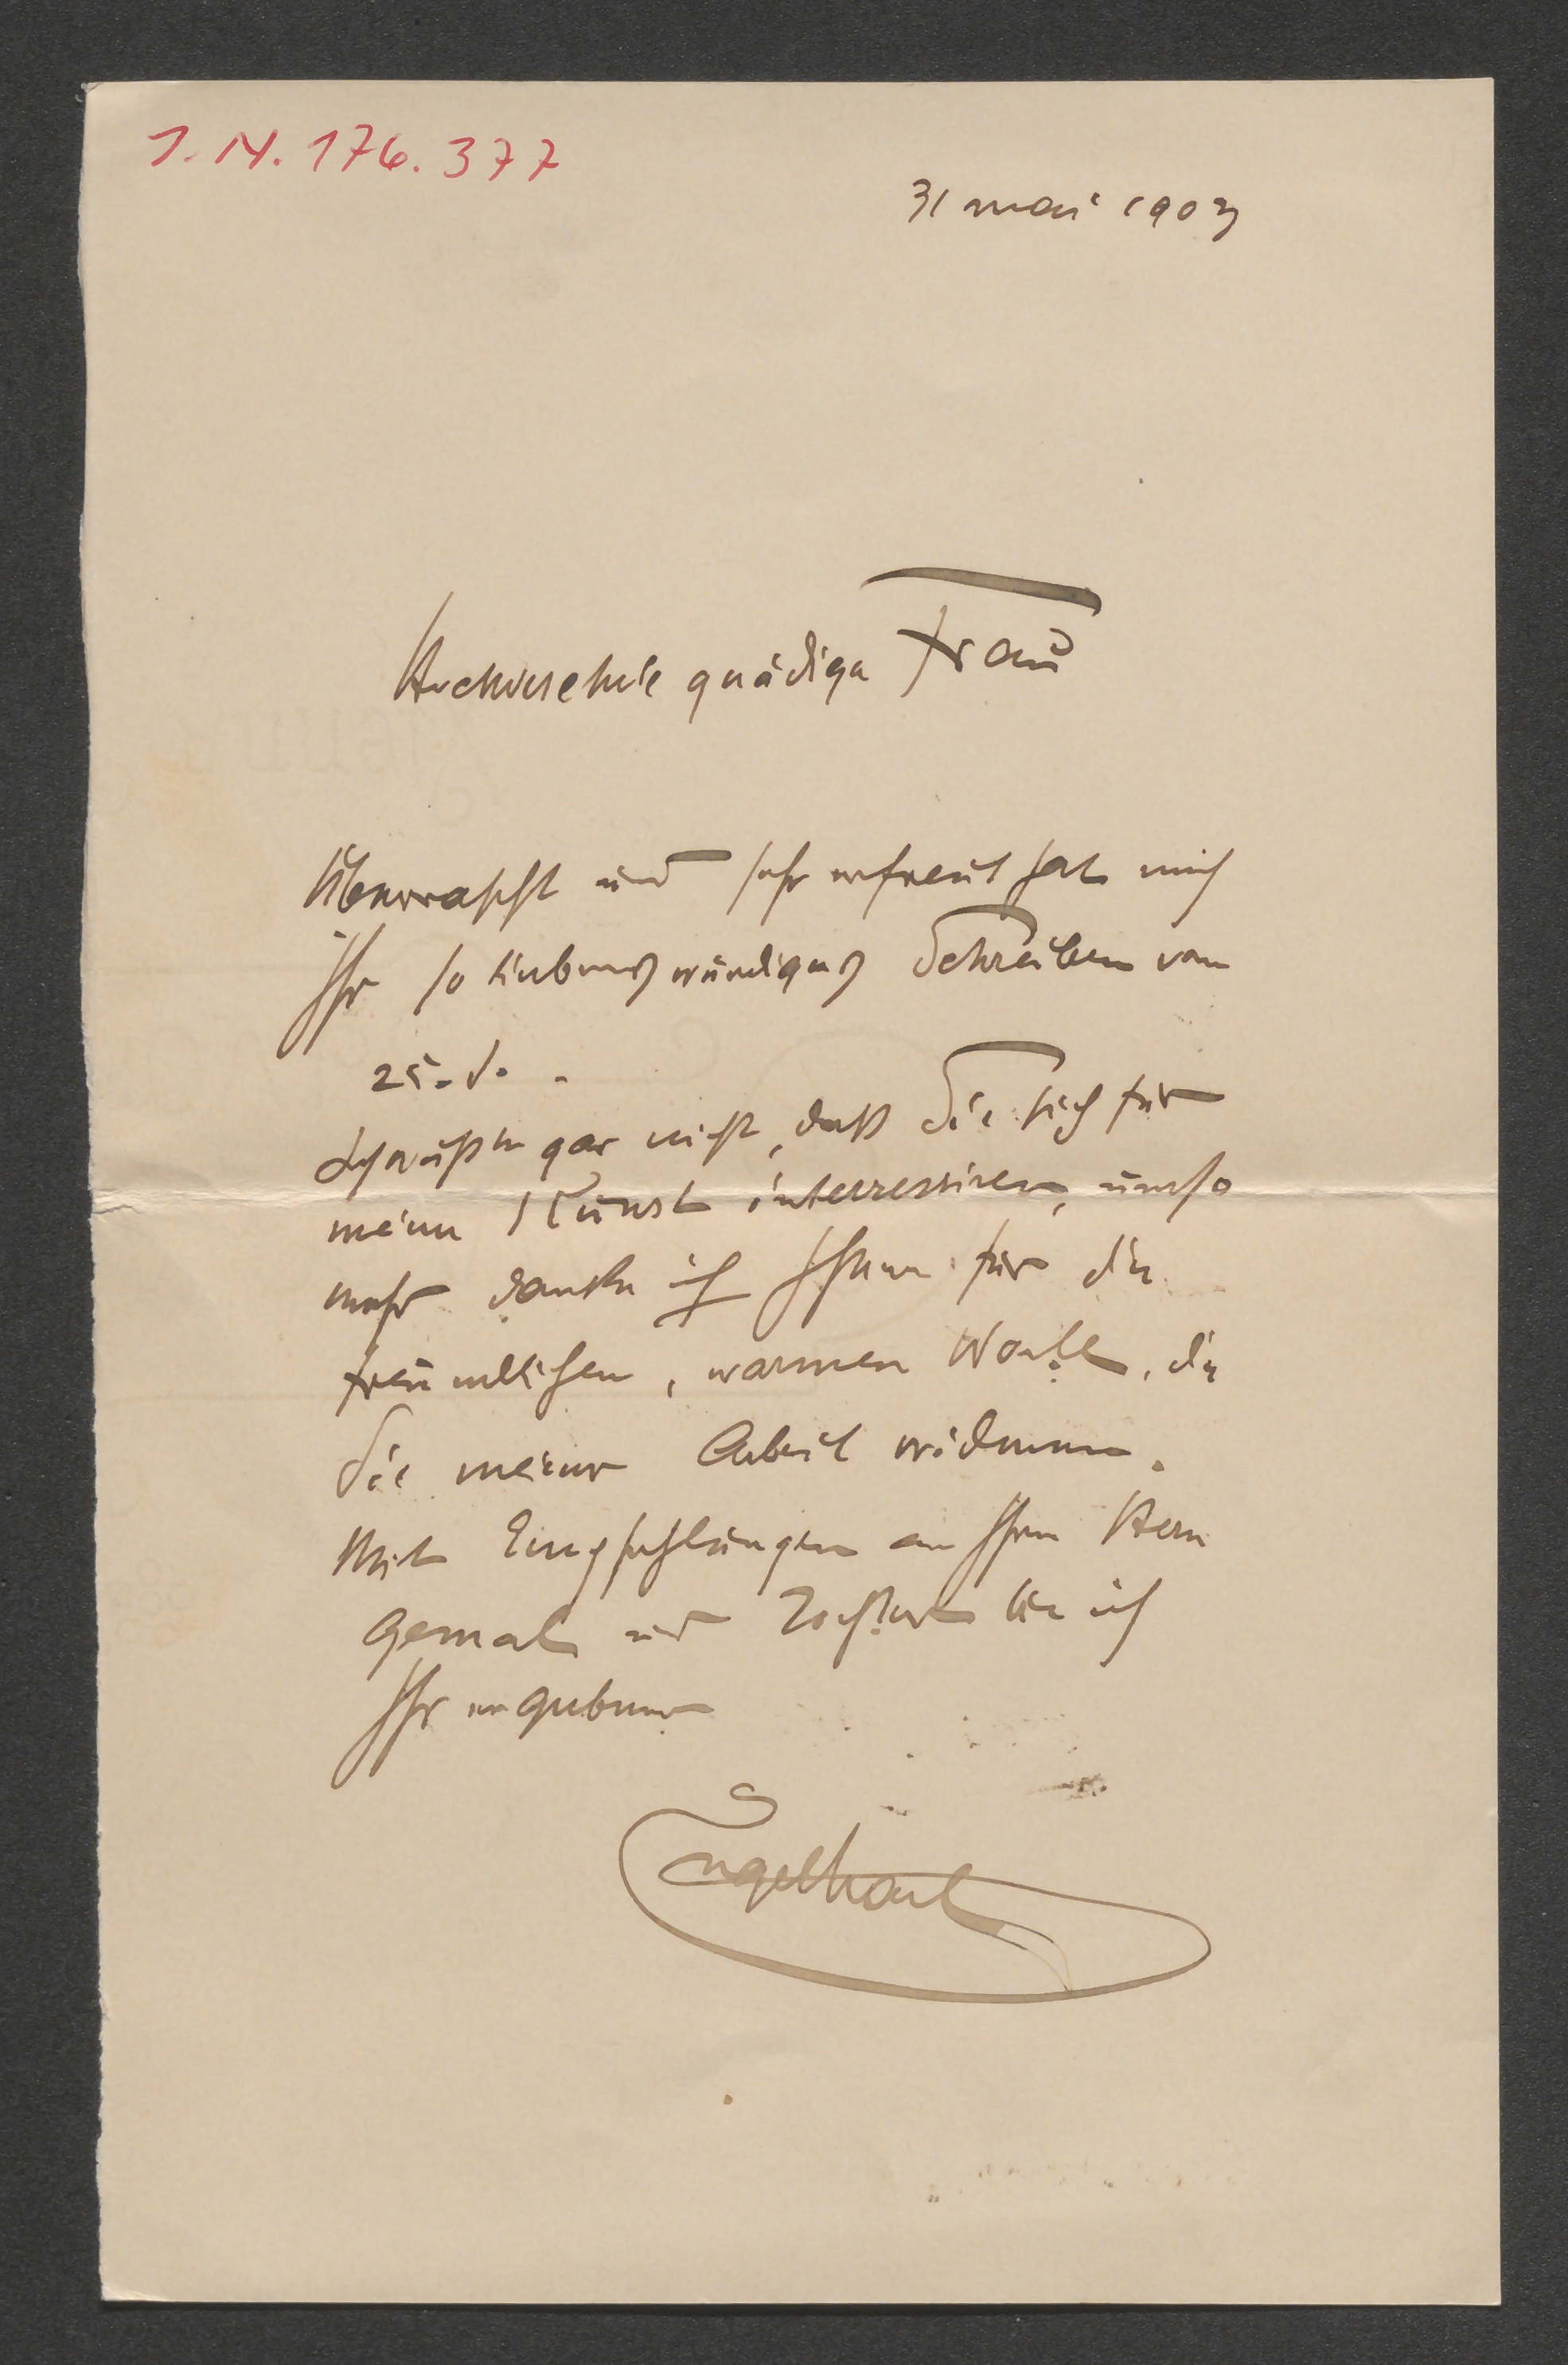 I. N. 176.377
31 mai 1903
Hochverehrte gnädige Frau
Überrascht und sehr erfreut hat mich
Ihr so liebenswürdiges Schreiben vom
25. d. .
Ich wußte gar nicht, daß Sie sich für
meine Kunst interressiren, umso
mehr danke ich Ihnen für die
freundlichen, warmen Worte, die
Sie meiner Arbeit widmen.
Mit Empfehlungen an Ihren Herrn
Gemal und Tochter bin ich
Ihr ergebener
Engelhart